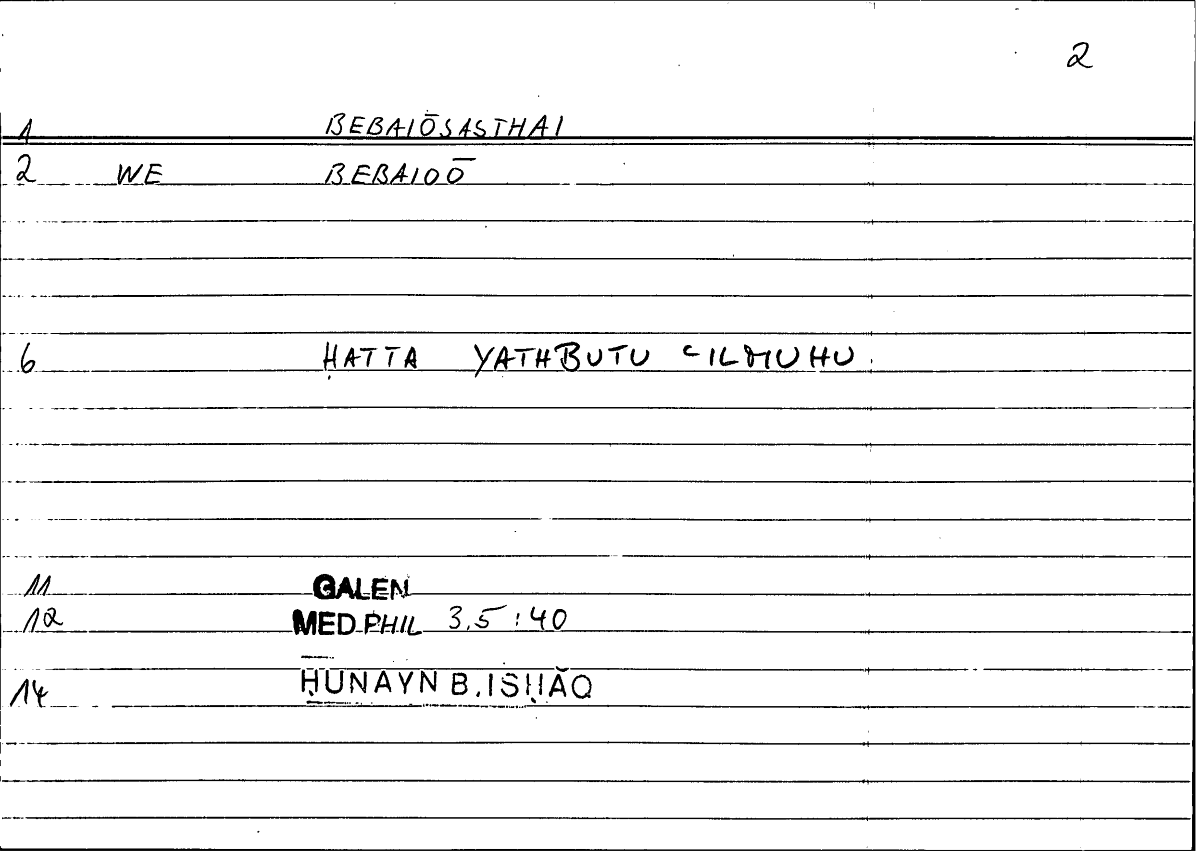 2
1 BEBAIŌSASTHAI
2 WE BEBAIOŌ
6 ḤATTA YATHBUTU ʿILMUHU
11 GALEN
12 MED PHIL 3,5 : 40
14 ḤUNAYN B. ISḤĀQ